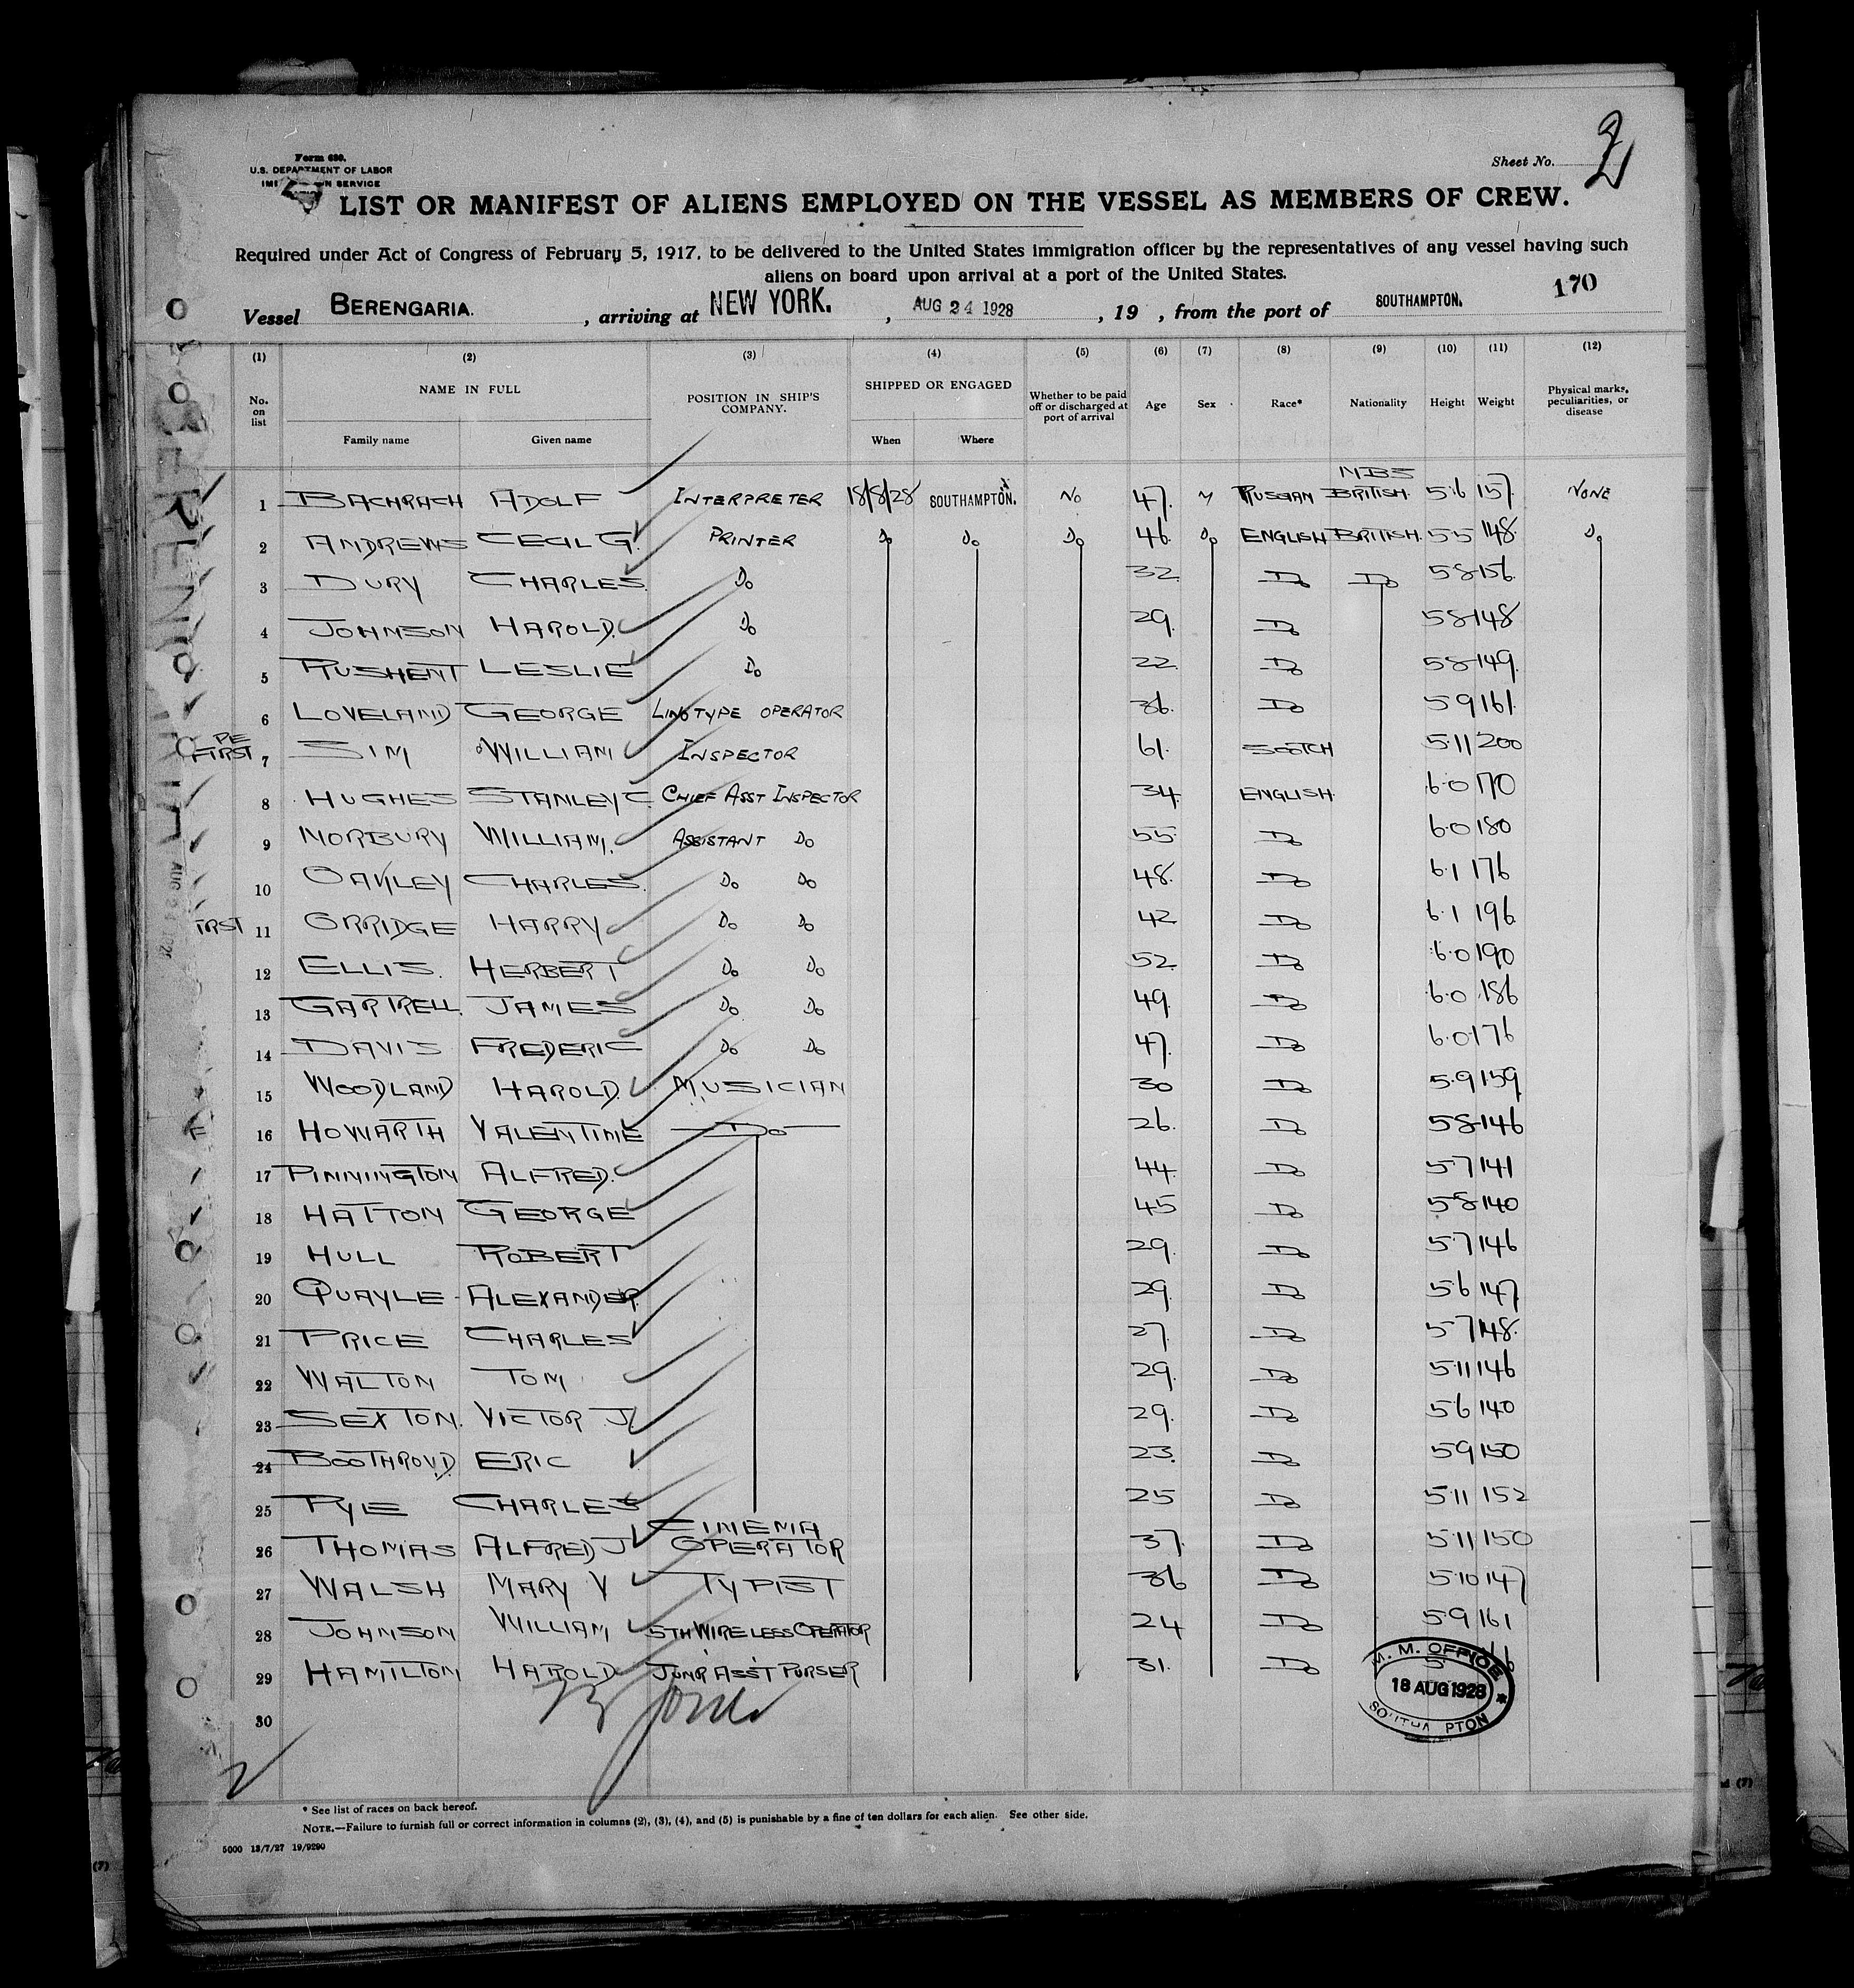 Form 680.
U.S. DEPARTMENT OF LABOR
SERVICE
Sheet No. 2
LIST OR MANIFEST OF ALIENS EMPLOYED ON THE VESSEL AS MEMBERS OF CREW.
Required under Act of Congress of February 5, 1917, to be delivered to the United States immigration officer by the representatives of any vessel having such
aliens on board upon arrival at a port of the United States.
170
Vessel BERENGARIA. , arriving at NEW YORK. , AUG 24 1928 , 19 , from the port of SOUTHAMPTON.
(1) (2) (3) (4) (5) (6) (7) (8) (9) (10) (11) (12)
No. on list NAME IN FULL Family name Given name POSITION IN SHIP'S COMPANY. SHIPPED OR ENGAGED When Where Whether to be paid off or discharged at port of arrival Age Sex Race* Nationality Height Weight Physical marks, peculiarities, or disease
1 BACHRACH ADOLF INTERPRETER 18/8/28 SOUTHAMPTON. No 47. M RUSSIAN BRITISH. 5.6 157. NONE
2 ANDREWS CECIL G. PRINTER Do Do Do 46. Do ENGLISH BRITISH. 5.5 148. Do
3 DURY CHARLES. Do 32. Do Do 5.8 156.
4 JOHNSON HAROLD. Do 29. Do 5.8 148
5 RUSHENT LESLIE Do 22. Do 5.8 149.
6 LOVELAND GEORGE LINOTYPE OPERATOR 36. Do 5.9 161.
FIRST 7 SIM WILLIAM INSPECTOR 61. SCOTCH 5.11 200
8 HUGHES STANLEY C. CHIEF ASST INSPECTOR 34. ENGLISH. 6.0 170
9 NORBURY WILLIAM. ASSISTANT Do 55. Do 6.0 180
10 OAKLEY CHARLES. Do Do 48. Do 6.1 176
11 ORRIDGE HARRY Do Do 42 Do 6.1 196
12 ELLIS. HERBERT Do Do 52. Do 6.0 190
13 GARTRELL. JAMES Do Do 49. Do 6.0 186
14 DAVIS FREDERIC Do Do 47. Do 6.0 176
15 WOODLAND HAROLD. MUSICIAN 30 Do 5.9 159
16 HOWARTH VALENTINE Do 26. Do 5.8 146
17 PINNINGTON ALFRED. 44. Do 5.7 141
18 HATTON GEORGE 45 Do 5.8 140
19 HULL ROBERT 29. Do 5.7 146
20 QUAYLE ALEXANDER. 29. Do 5.6 147
21 PRICE CHARLES 27. Do 5.7 148.
22 WALTON TOM 29. Do 5.11 146
23 SEXTON. VICTOR J. 29. Do 5.6 140
24 BOOTHROYD ERIC 23. Do 5.9 150
25 PYLE CHARLES 25 Do 5.11 152
26 THOMAS ALFRED J CINEMA OPERATOR 37. Do 5.11 150
27 WALSH MARY V TYPIST 36 Do 5.10 147
28 JOHNSON WILLIAM 5TH WIRELESS OPERATOR 24 Do 5.9 161
29 HAMILTON HAROLD JUNR ASST PURSER 31. Do
30
M. M. OFFICE
18 AUG 1928
* See list of races on back hereof.
NOTE.—Failure to furnish full or correct information in columns (2), (3), (4), and (5) is punishable by a fine of ten dollars for each alien. See other side.
5000 13/7/27 19/9290